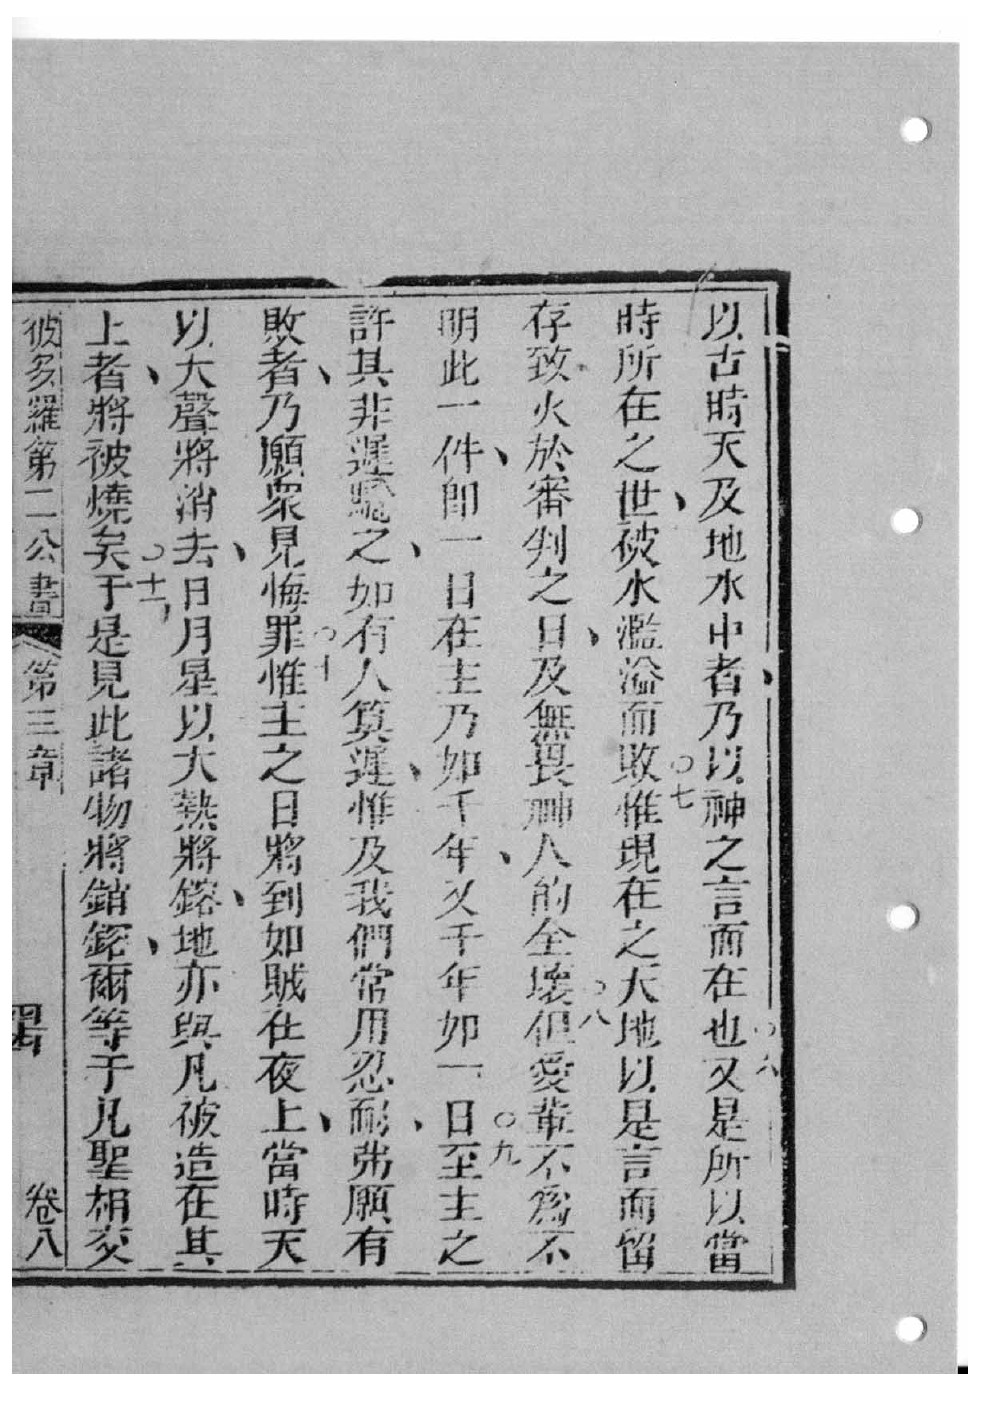 以古時天及地水中者乃以神之言而在也又是所以當
時所在之世被水濫溢而敗惟現在之天地以是言而留
存致火於審判之日及無畏神人的全壞但愛輩不爲不
明此一件卽一日在主乃如千年又千年如一日至主之
許其非遲騐之如有人算遲惟及我們常用忍耐弗願有
敗者乃願衆見悔罪惟主之日將到如賊在夜上當時天
以大聲將消去日月星以大熱將鎔地亦與凡被造在其
上者將被燒矣于是見此諸物將銷鎔爾等于凡聖相交
彼多羅第二公書 第三章 卷八
○六
○七
○八
○九
○十
○十一